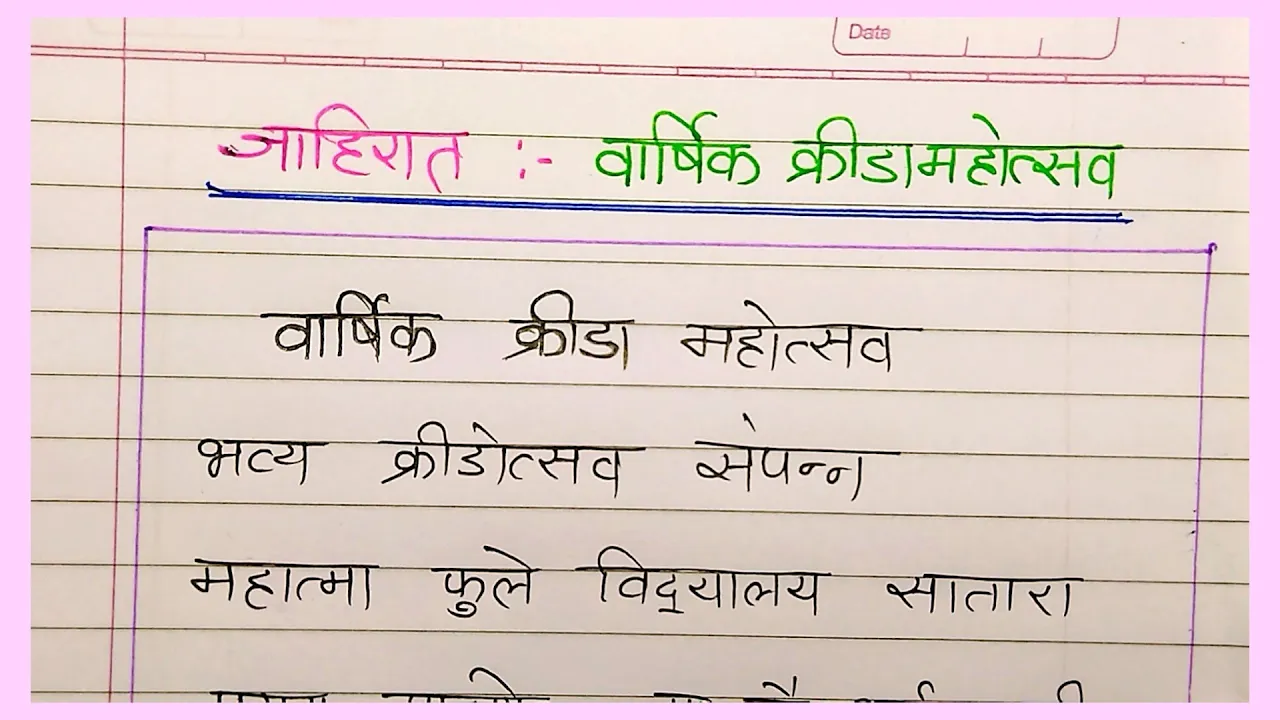 Date
जाहिरात :- वार्षिक क्रीडामहोत्सव
वार्षिक क्रीडा महोत्सव
भव्य क्रीडोत्सव संपन्न
महात्मा फुले विद्‌यालय सातारा